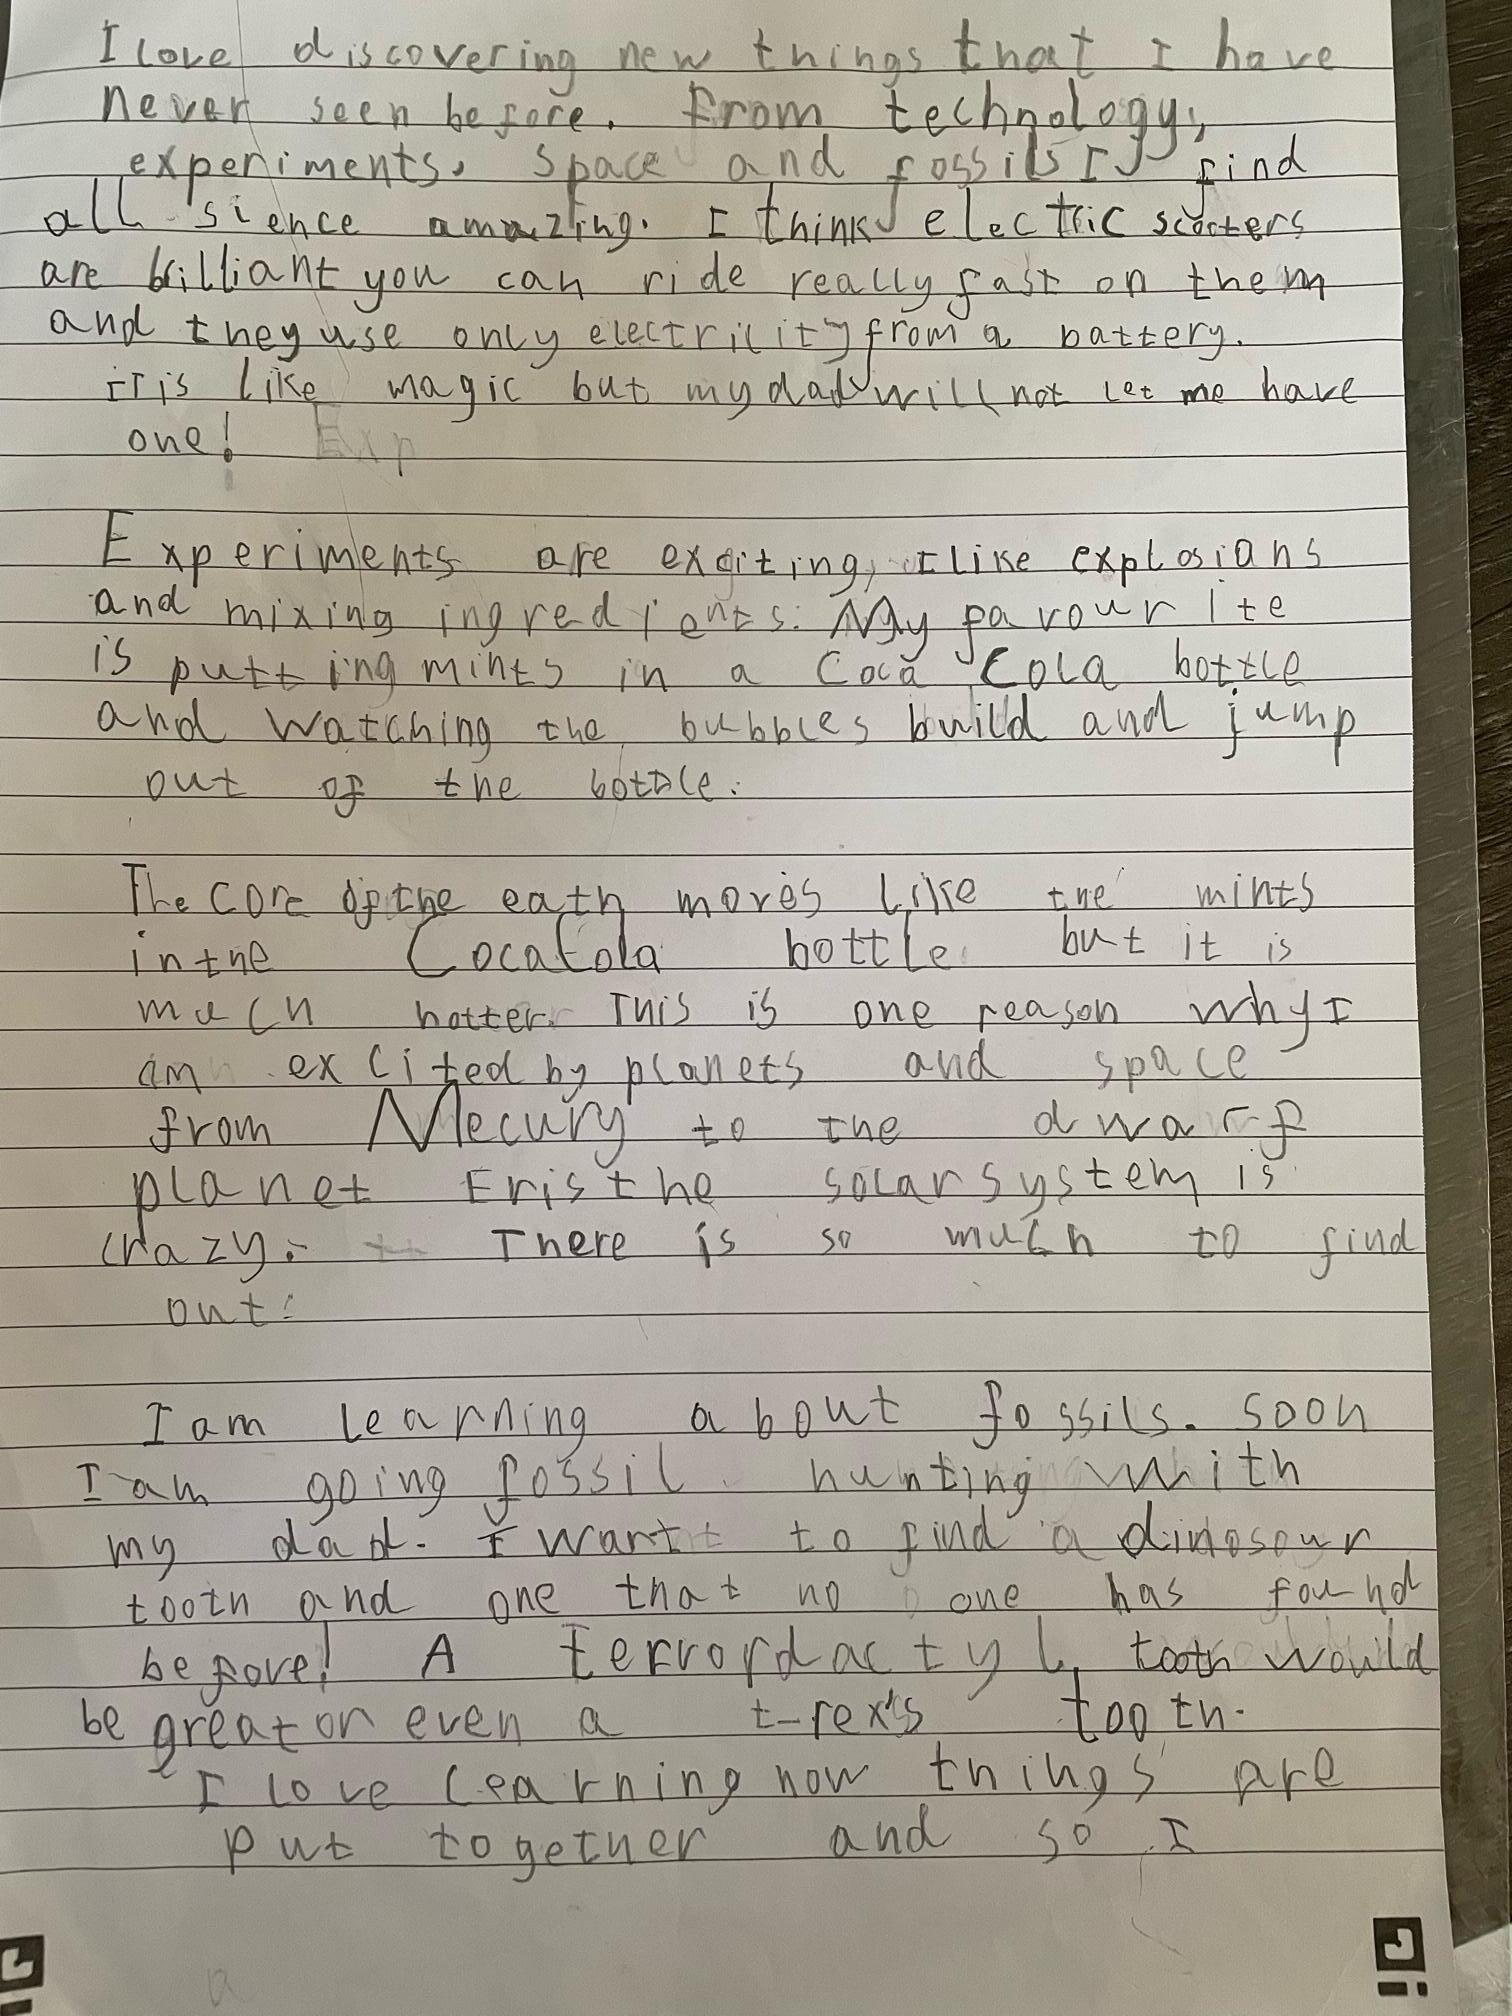 I love discovering new things that I have
never seen before. From technology,
experiments, space and fossils I find
all sience amazing. I think electric scooters
are brilliant you can ride really fast on them
and they use only electricity from a battery.
it is like magic but my dad will not let me have
one! Exp
Experiments are exciting, I like explosians
and mixing ingredients. My favourite
is putting mints in a Coca Cola bottle
and watching the bubbles build and jump
out of the bottle.
The core of the eath moves like the mints
in the Coca Cola bottle but it is
much hotter. This is one reason why I
am excited by planets and space
from Mecury to the dwarf
planet Eris the solar system is
crazy. There is so much to find
out.
I am learning about fossils. Soon
I am going fossil hunting with
my dad. I want to find a dinosour
tooth and one that no one has found
before! A terrordactyl tooth would
be great or even a t-rex's tooth.
I love learning how things are
put together and so I